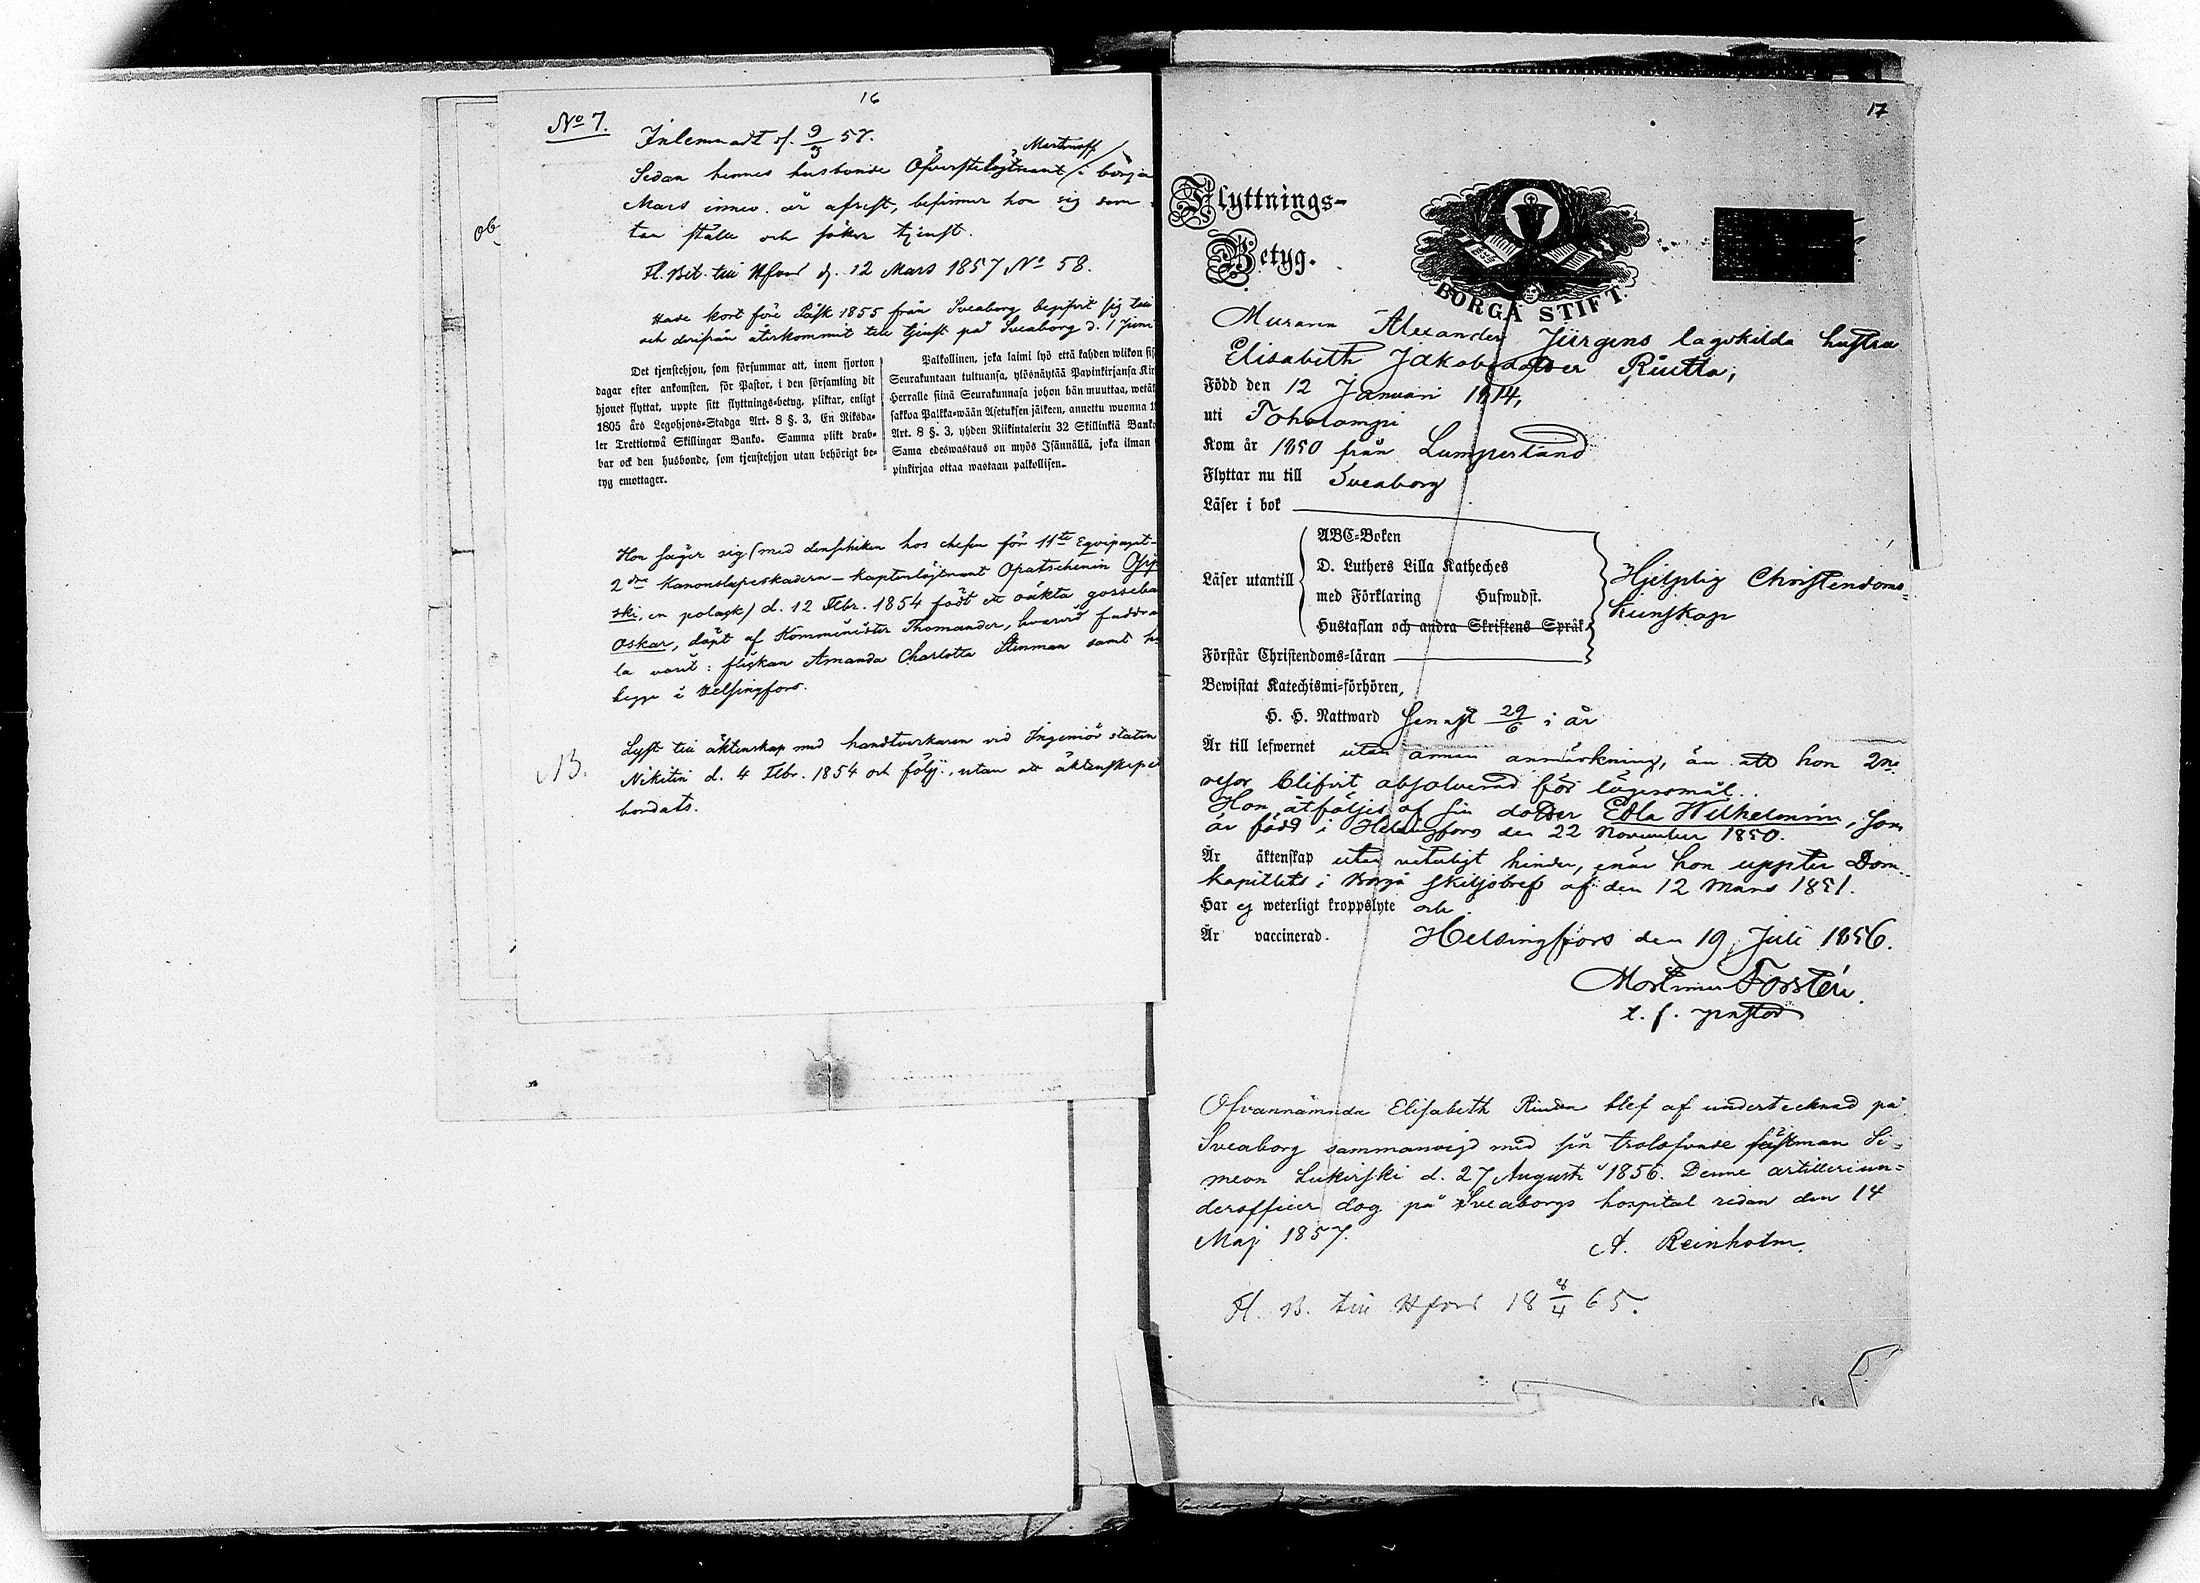 16
No 7.
Inlemnadt d. 9/3 57.
Martinoff
Sedan hennes husbonde Öfverstelöjtnant / i början
Mars innev. år afrest, befinner hon sig
tan ställe och söker tjenst.
Fl. Bet. till Hfors d. 12 Mars 1857 No 58.
Hade kort före Påsk 1855 från Sveaborg begifvit sig till
och derifrån återkommit till tjenst på Sveaborg d. 1 Juni
ob
Det tjenstehjon, som försummar att, inom fjorton
dagar efter ankomsten, för Pastor, i den församling dit
hjonet flyttat, uppte sitt flyttnings-betyg, pliktar, enligt
1805 års Legohjons-Stadga Art. 8 §. 3, En Riksda-
ler Trettiotwå Skillingar Banko. Samma plikt drab-
bar ock den husbonde, som tjenstehjon utan behörigt be-
tyg emottager.
Palkollinen, joka laimi lyö että kahden wiikon
Seurakuntaan tultuansa, ylösnäytää Papinkirjansa
Herralle siinä Seurakunnasa johon hän muuttaa, wetä
sakkoa Palkka-wään Asetuksen jälkeen, annettu wuonna
Art. 8 §. 3, yhden Riikintalerin 32 Skillinkiä
Sama edeswastaus on myös Isännällä, joka ilman
pinkirjaa ottaa wastaan palkollisen.
Hon säger sig (med denschiken hos chefen för 11te Eqvipaget-
2dra Kanonslupeskadern - Kaptenlöjtnant Opatschenin
ski, en polack) d. 12 Febr. 1854 födt ett oäkta gosseba
Oskar, döpt af Komminister Thomander, hvarvid faddra
la varit: flickan Amanda Charlotta Stenman samt
begge i Helsingfors.
NB.
Lyst till äktenskap med handtverkaren vid Ingeniör staten
Nikitin d. 4 Febr. 1854 och följ., utan att äktenskapet
bordats.
17
Flyttnings-
Betyg.
BORGÅ STIFT.
Muraren Alexander Jürgens lagskilda hustru
Elisabeth Jakobsdotter Riutta,
Född den 12 Januari 1814,
uti Toholampi
Kom år 1850 från Lumperland
Flyttar nu till Sveaborg
Läser i bok
Läser utantill
ABC-Boken
D. Luthers Lilla Katheches
med Förklaring Hufwudst.
Hustaflan och andra Skriftens Språk
Hjelplig Christendoms-
kunskap
Förstår Christendoms-läran
Bewistat Katechismi-förhören,
H. H. Nattward senast 29/6 i år
Är till lefwernet utan annan anmärkning, än att hon 2ne
resor blifvit absolverad för lägersmål.
Hon åtföljes af sin dotter Edla Wilhelmina, som
är född i Helsingfors den 22 November 1850.
Är äktenskap utan veterligt hinder, enär hon uppter Dom-
kapitlets i Borgå skiljobref af den 12 Mars 1851.
Har ej weterligt kroppslyte och
Är vaccinerad.
Helsingfors den 19 Juli 1856.
Mortimer Forstén.
t. f. pastor
Ofvannämnda Elisabeth Riutta blef af undertecknad på
Sveaborg sammanvigd med sin trolofvade fästman Si-
meon Lukirski d. 27 Augusti 1856. Denne artilleriun-
derofficer dog på Sveaborgs hospital redan den 14
Maj 1857.
A. Reinholm.
Fl. B. till Hfors 18 8/4 65.